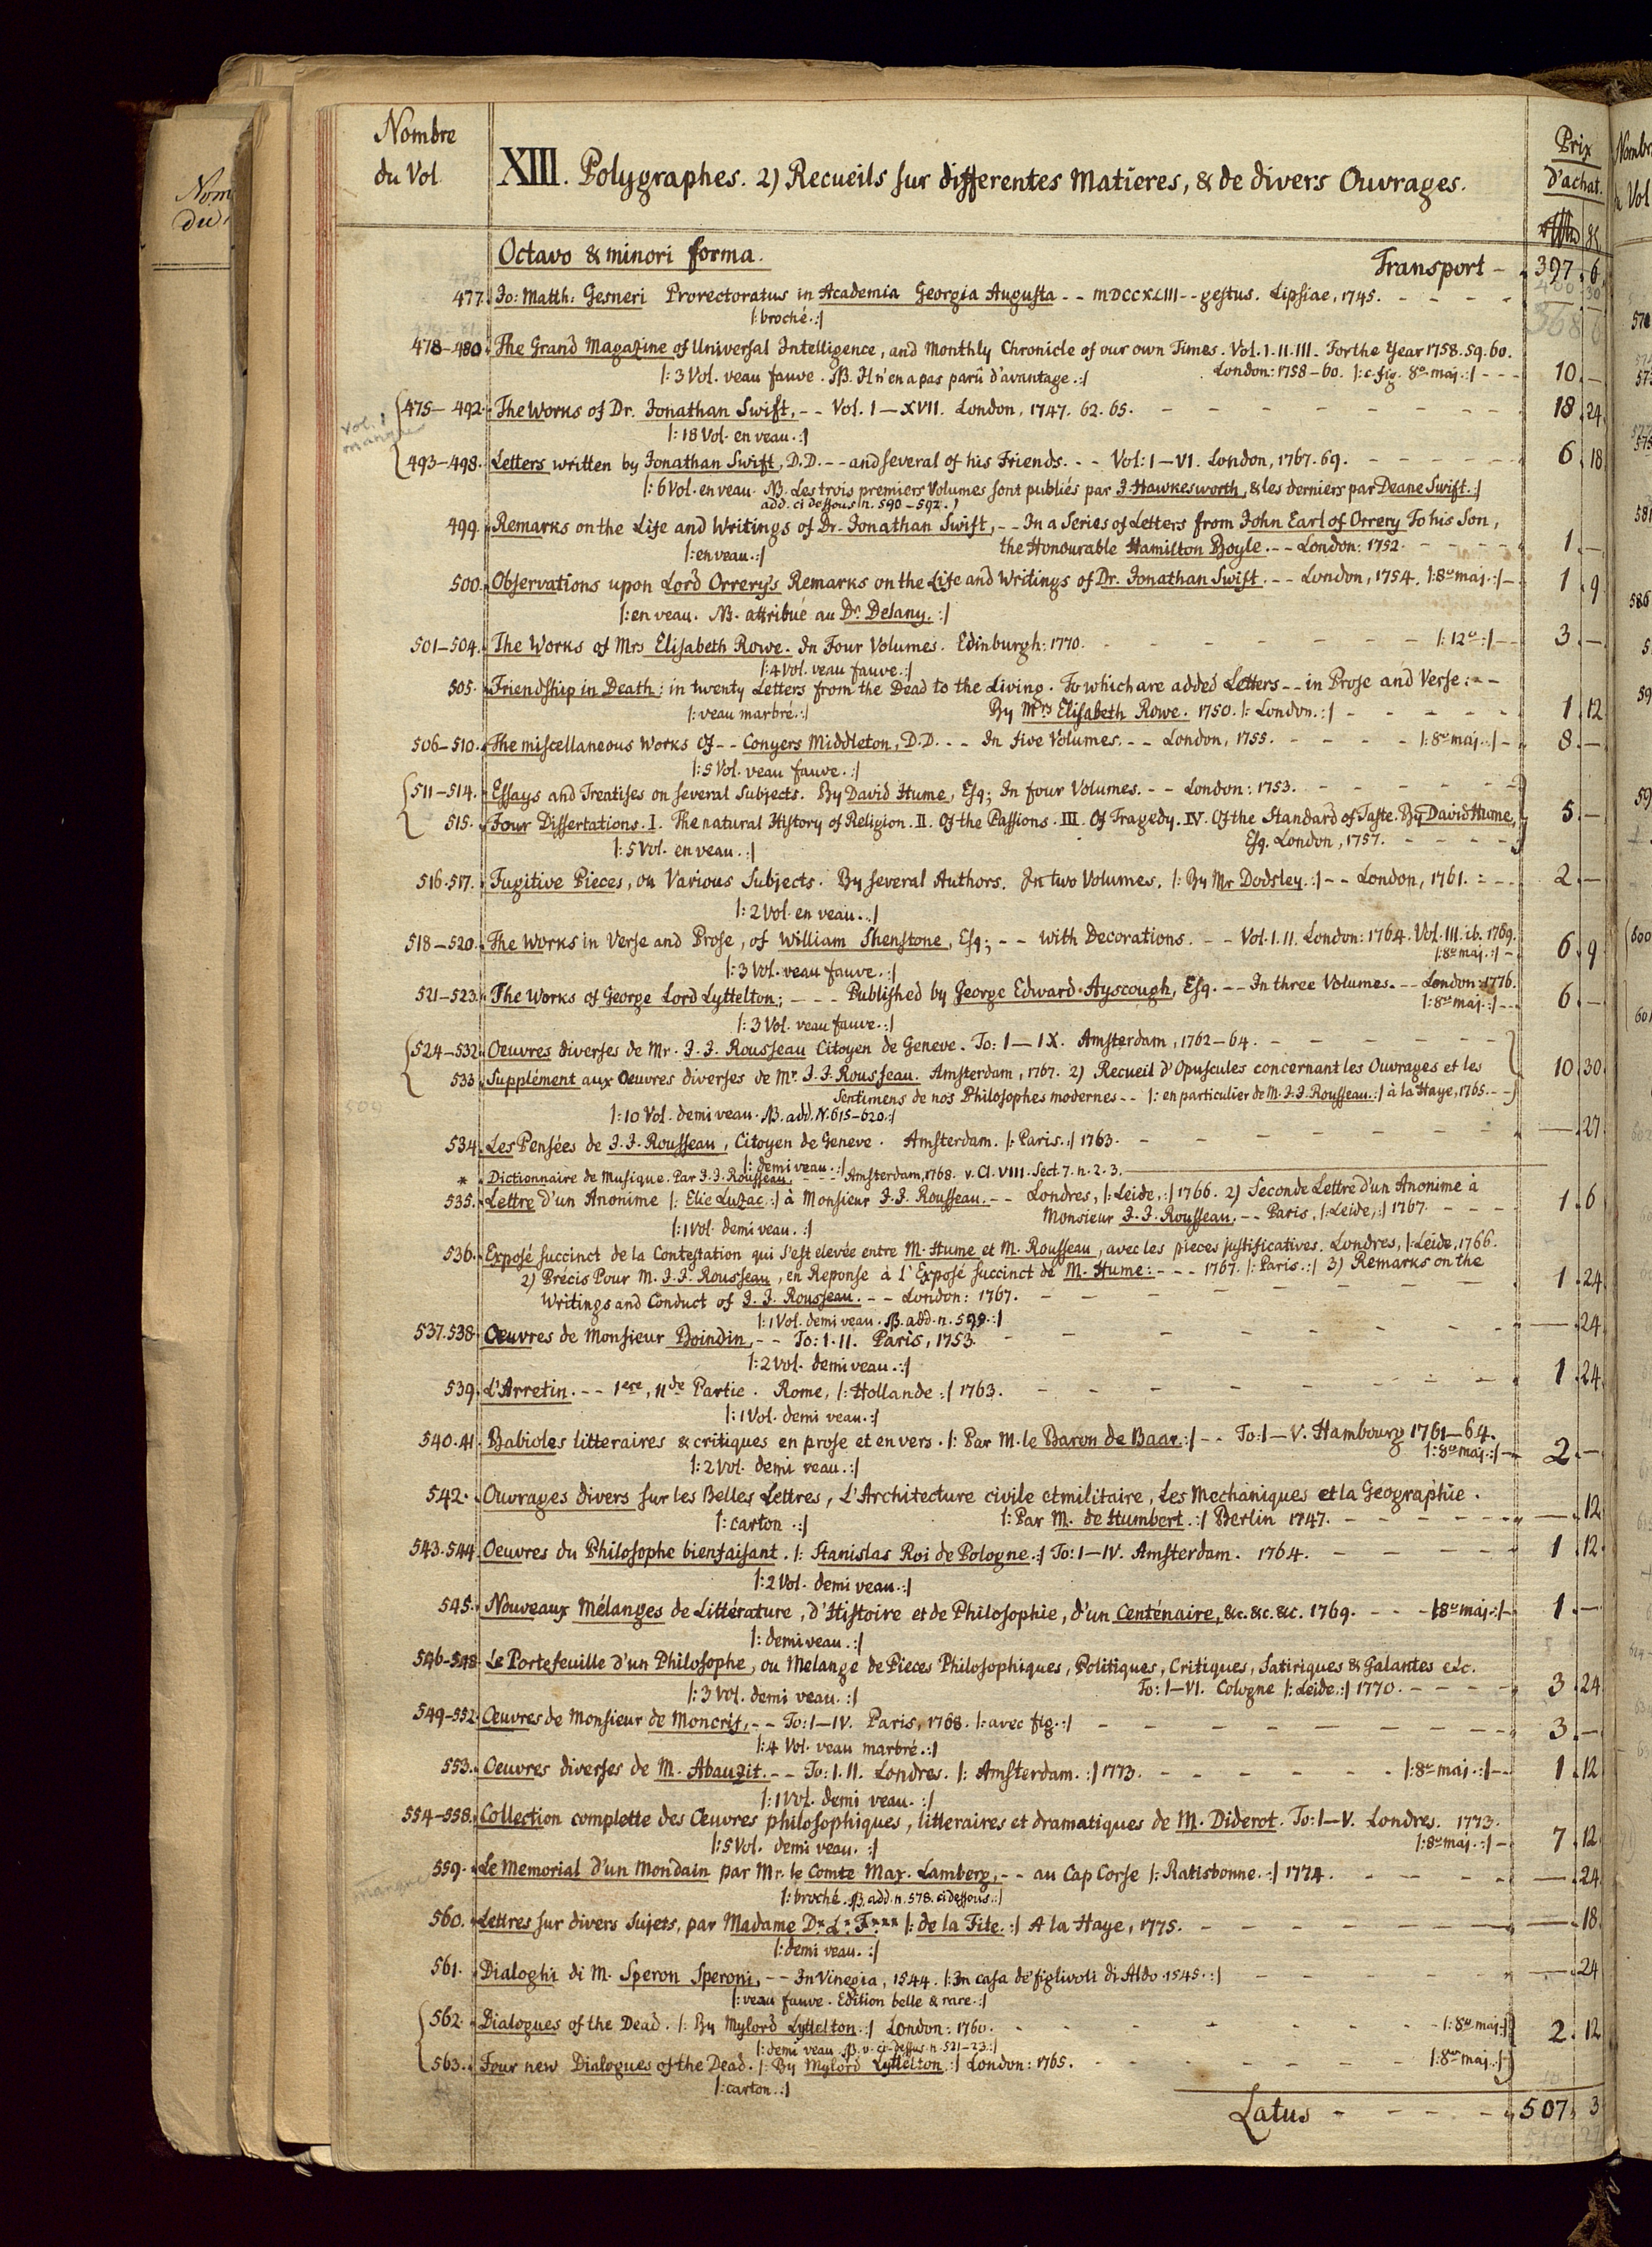 Nombre
du Vol.
XIII. Polygraphes. 2) Recueils sur differentes Matieres, & de divers Ouvrages.
Prix
d'achat.
Octavo & minori forma.
Transport - 397. 6
477. Jo: Matth: Gesneri Prorectoratus in Academia Georgia Augusta - - MDCCXLIII - - gestus. Lipsiae, 1745. - - - -
|: broché. :|
478-480. The Grand Magazine of Universal Intelligence, and Monthly Chronicle of our own Times. Vol. I. II. III. For the Year 1758. 59. 60.
|: 3 Vol. veau fauve. NB. Il n'en a pas parû d'avantage. :| London: 1758-60. |: c. fig. 8º maj. :| - - - 10. —
Vol. 1
manque
475-492. The Works of Dr. Jonathan Swift, - - Vol. I-XVII. London, 1747. 62. 65. - - - - - - - 18. 24
|: 18 Vol. en veau. :|
493-498. Letters written by Jonathan Swift, D.D. - - and several of his Friends. - - Vol: I-VI. London, 1767. 69. - - - - - 6. 18
|: 6 Vol. en veau. NB. Les trois premiers Volumes sont publiés par J. Hawkesworth, & les derniers par Deane Swift. :|
add. ci dessous n. 590-592.)
499. Remarks on the Life and Writings of Dr. Jonathan Swift, - - In a Series of Letters from John Earl of Orrery To his Son,
|: en veau. :| the Honourable Hamilton Boyle. - - London: 1752. - - - - 1. —
500. Observations upon Lord Orrery's Remarks on the Life and Writings of Dr. Jonathan Swift. - - London, 1754. |: 8º maj. :| - 1. 9
|: en veau. NB. attribué au Dr. Delany. :|
501-504. The Works of Mrs Elisabeth Rowe. In Four Volumes. Edinburgh: 1770. - - - - - - |: 12º :| - - 3. —
|: 4 Vol. veau fauve. :|
505. Friendship in Death: in twenty Letters from the Dead to the Living. To which are added Letters - - in Prose and Verse: - -
|: veau marbré. :| By Mrs Elisabeth Rowe. 1750. |: London. :| - - - - - 1. 12
506-510. The miscellaneous Works of - - Conyers Middleton, D.D. - - In five Volumes. - - London, 1755. - - - - |: 8º maj. :| - 8. —
|: 5 Vol. veau fauve. :|
511-514. Essays and Treatises on several Subjects. By David Hume, Esq; In four Volumes. - - London: 1753. - - - - - -
515. Four Dissertations. I. The natural History of Religion. II. Of the Passions. III. Of Tragedy. IV. Of the Standard of Taste. By David Hume, 5. —
|: 5 Vol. en veau. :| Esq. London, 1757. - - - -
516. 517. Fugitive Pieces, on Various Subjects. By several Authors. In two Volumes. |: By Mr Dodsley. :| - - London, 1761. - - - 2. —
|: 2 Vol. en veau. :|
518-520. The Works in Verse and Prose, of William Shenstone, Esq; - - with Decorations. - - Vol. I. II. London: 1764. Vol. III. ib. 1769.
|: 8º maj. :| - 6. 9
|: 3 Vol. veau fauve. :|
521-523. The Works of George Lord Lyttelton; - - - Published by George Edward Ayscough, Esq. - - In three Volumes. - - London: 1776.
|: 8º maj. :| - - 6. —
|: 3 Vol. veau fauve. :|
524-532. Oeuvres diverses de Mr. J. J. Rousseau Citoyen de Geneve. To: I-IX. Amsterdam, 1762-64. - - - - - -
533. Supplément aux Oeuvres diverses de Mr. J. J. Rousseau. Amsterdam, 1767. 2) Recueil d'Opuscules concernant les Ouvrages et les 10. 30
Sentimens de nos Philosophes modernes - - |: en particulier de M. J. J. Rousseau. :| à la Haye, 1765. - -
|: 10 Vol. demi veau. NB. add. N. 615-620. :|
534. Les Pensées de J. J. Rousseau, Citoyen de Geneve. Amsterdam. |: Paris. :| 1763. - - - - - - - — . 27
|: demi veau. :|
* Dictionnaire de Musique. Par J. J. Rousseau. - - - Amsterdam, 1768. v. Cl. VIII. Sect. 7. n. 2. 3.
535. Lettre d'un Anonime |: Elie Luzac. :| à Monsieur J. J. Rousseau. - - Londres, |: Leide, :| 1766. 2) Seconde Lettre d'un Anonime à
Monsieur J. J. Rousseau. - - Paris, |: Leide, :| 1767. - - - - 1. 6
|: 1 Vol. demi veau. :|
536. Exposé succinct de la Contestation qui s'est elevée entre M. Hume et M. Rousseau, avec les pieces justificatives. Londres, |: Leide, 1766.
2) Precis Pour M. J. J. Rousseau, en Reponse à l'Exposé succinct de M. Hume: - - - 1767. |: Paris. :| 3) Remarks on the
Writings and Conduct of J. J. Rousseau. - - London: 1767. - - - - - - - - 1. 24
|: 1 Vol. demi veau. NB. add. n. 599. :|
537. 538. Oeuvres de Monsieur Boindin, - - To: I. II. Paris, 1753. - - - - - - — . 24
|: 2 Vol. demi veau. :|
539. L'Arretin. - - 1ere, IIde Partie. Rome, |: Hollande :| 1763. - - - - - - - 1. 24
|: 1 Vol. demi veau. :|
540. 41. Babioles litteraires & critiques en prose et en vers. |: Par M. le Baron de Baar. :| - - To: I-V. Hambourg 1761-64.
|: 8º maj. :| - 2. —
|: 2 Vol. demi veau. :|
542. Ouvrages divers sur les Belles Lettres, L'Architecture civile et militaire, Les Mechaniques et la Geographie.
|: carton. :| |: Par M. de Humbert. :| Berlin 1747. - - - - - - — . 12
543. 544. Oeuvres du Philosophe bienfaisant. |: Stanislas Roi de Pologne. :| To: I-IV. Amsterdam. 1764. - - - - - 1. 12
|: 2 Vol. demi veau. :|
545. Nouveaux Mélanges de Littérature, d'Histoire et de Philosophie, d'un Centénaire, &c. &c. &c. 1769. - - - |: 8º maj. :| - 1. —
|: demi veau. :|
546-548. Le Portefeuille d'un Philosophe, ou Melange de Pieces Philosophiques, Politiques, Critiques, Satiriques & Galantes etc.
|: 3 Vol. demi veau. :| To: I-VI. Cologne |: Leide. :| 1770. - - - - 3. 24
549-552. Œuvres de Monsieur de Moncrif, - - To: I-IV. Paris, 1768. |: avec fig. :| - - - - - - - 3. —
|: 4 Vol. veau marbré. :|
553. Oeuvres diverses de M. Abauzit. - - To: I. II. Londres. |: Amsterdam. :| 1773. - - - - - - |: 8º maj. :| - - 1. 12
|: 1 Vol. demi veau. :|
554-558. Collection complette des Œuvres philosophiques, litteraires et dramatiques de M. Diderot. To: I-V. Londres. 1773.
|: 5 Vol. demi veau. :| |: 8º maj. :| - 7. 12
manque
559. Le Memorial d'un Mondain par Mr. le Comte Max. Lamberg, - - au Cap Corse |: Ratisbonne. :| 1774. - - - - — . 24
|: broché. NB. add. n. 578. ci dessous. :|
560. Lettres sur divers Sujets, par Madame D* L* F*** |: de la Fite. :| A la Haye, 1775. - - - - - - — . 18
|: demi veau. :|
561. Dialoghi di M. Speron Speroni, - - In Vinegia, 1544. |: In casa de' figlivoli di Aldo. 1545. :| - - - - - — . 24
|: veau fauve. Edition belle & rare. :|
562. Dialogues of the Dead. |: By Mylord Lyttelton. :| London: 1760. - - - - - - |: 8º maj. :| 2. 12
|: demi veau. NB. v. ci-dessus n. 521-23. :|
563. Four new Dialogues of the Dead. |: By Mylord Lyttelton. :| London: 1765. - - - - - - |: 8º maj. :|
|: carton. :|
Latus - - - - 507. 3